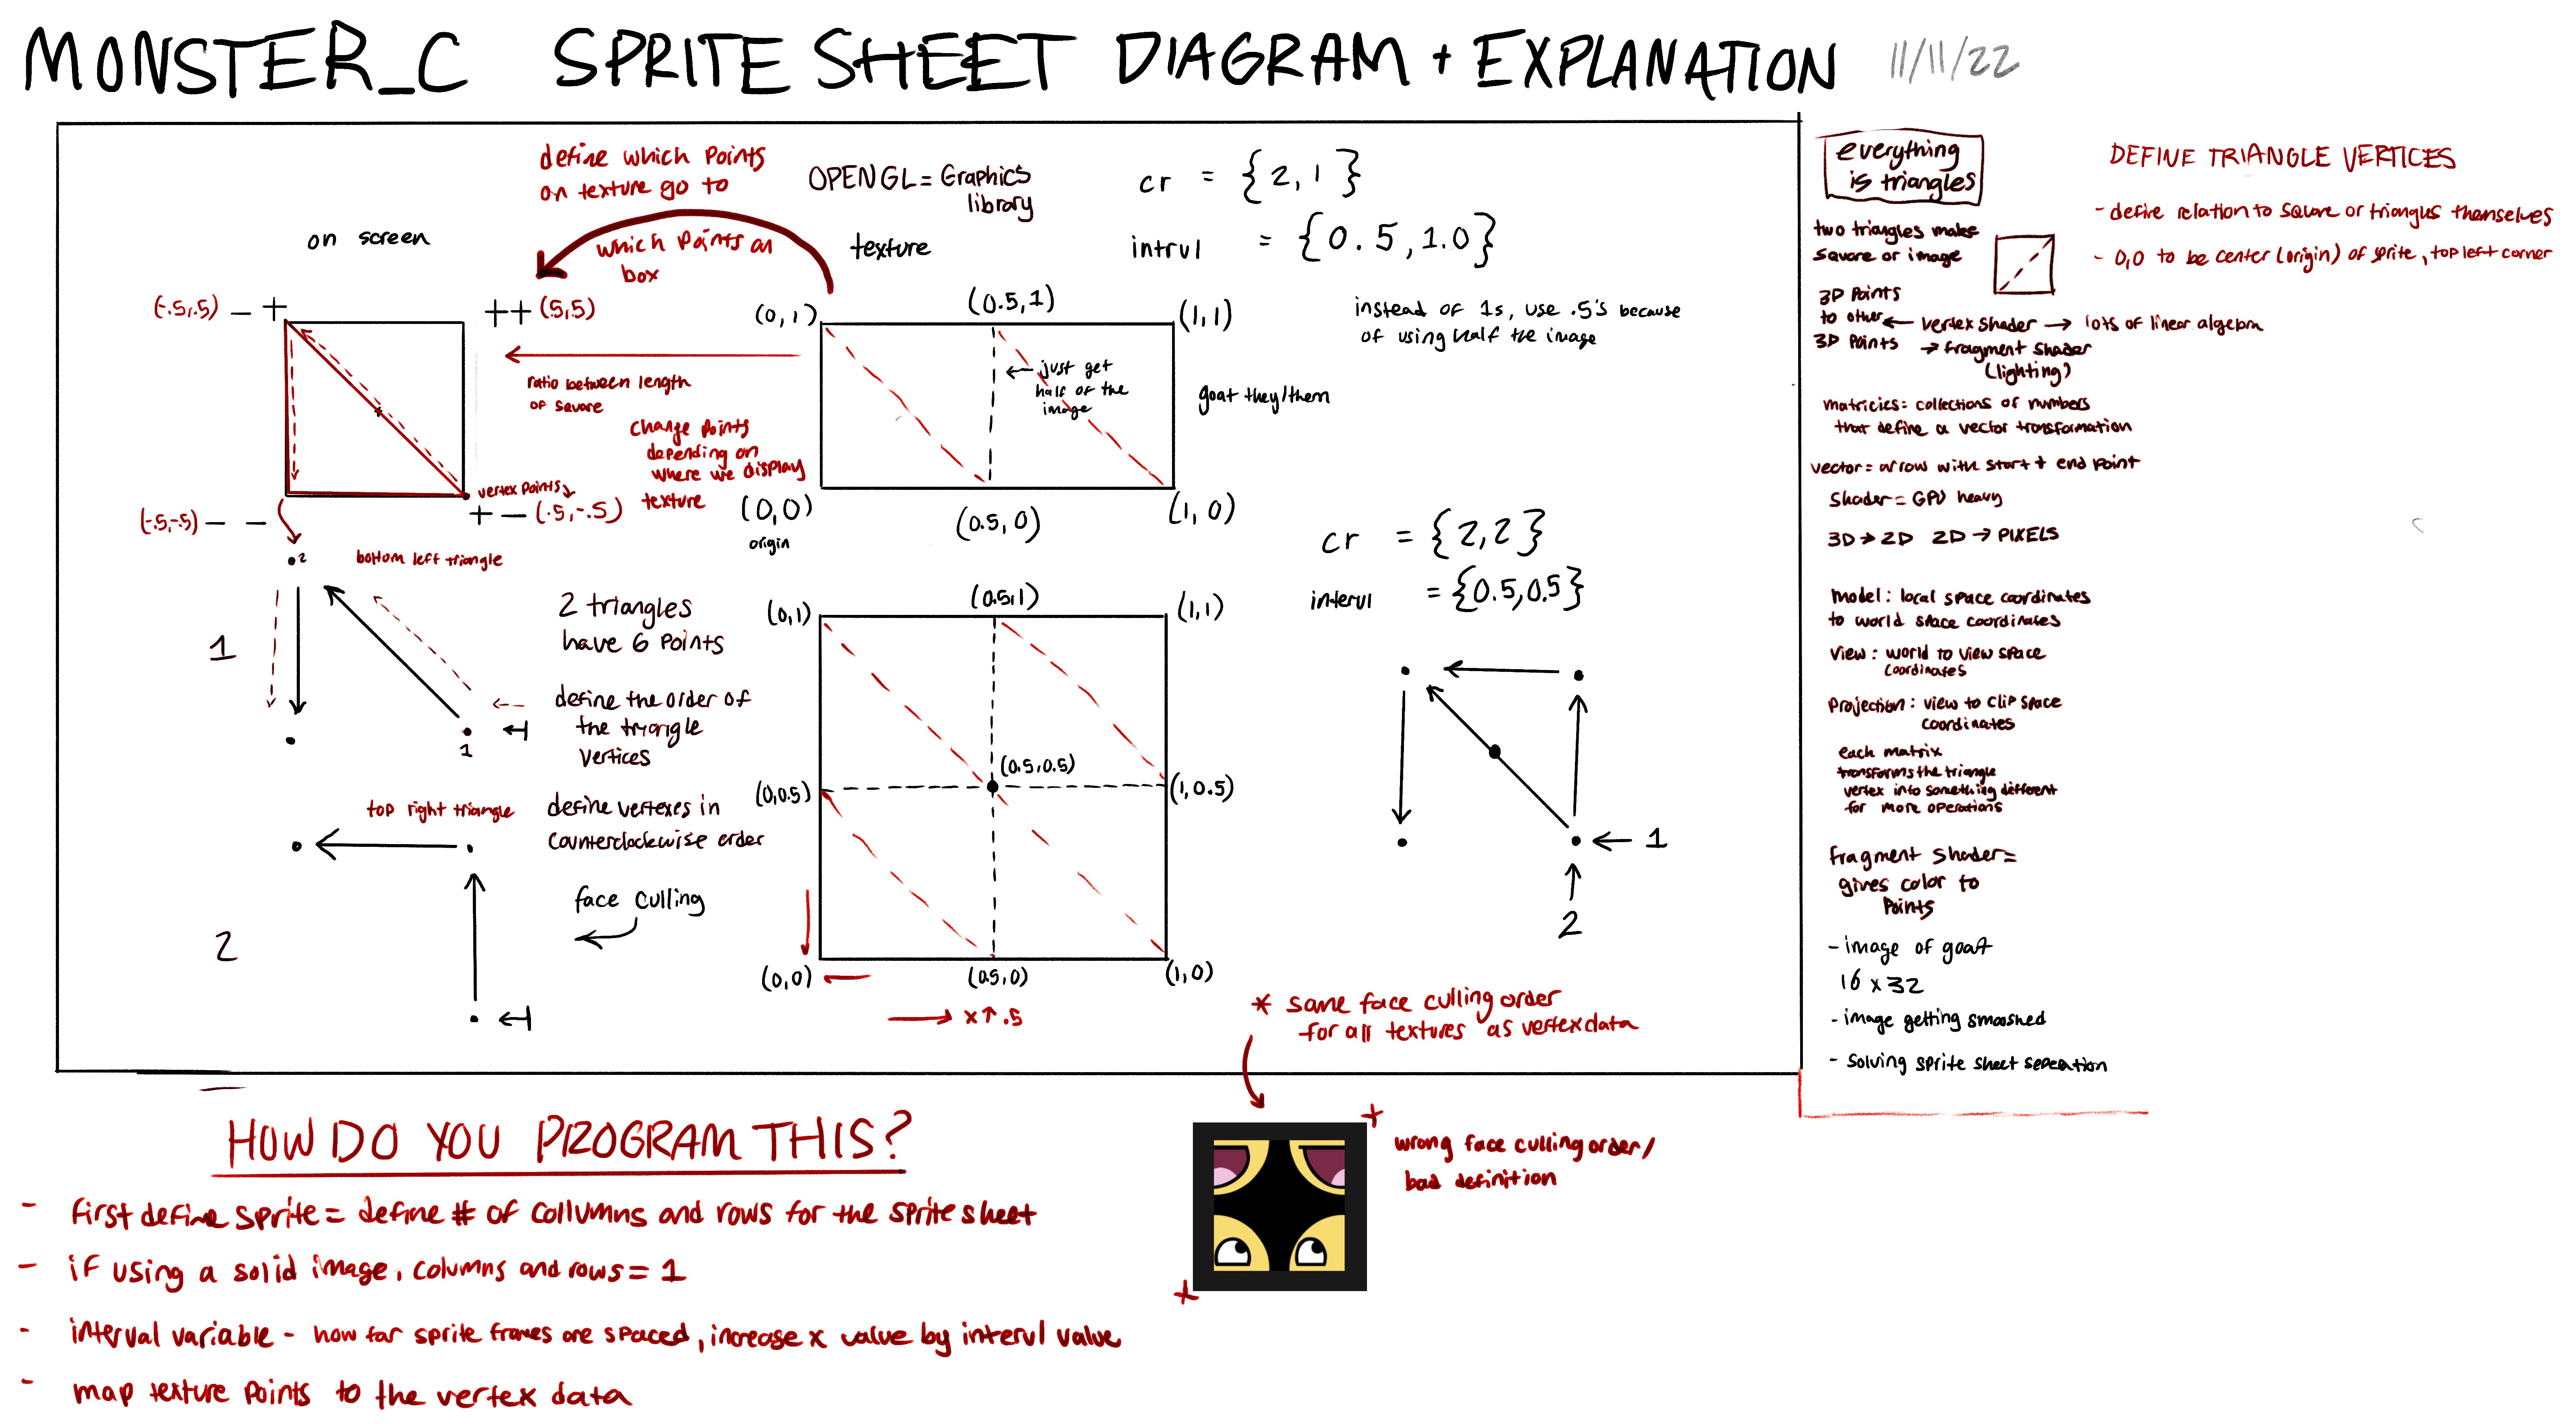 MONSTER_C SPRITE SHEET DIAGRAM + EXPLANATION 11/11/22
define which points
on texture go to
which points on
box
OPENGL = Graphics
library
cr = {2,1}
intrvl = {0.5,1.0}
instead of 1s, use .5's because
of using half the image
on screen
texture
(-.5,.5) - +
++ (5,5)
(-.5,-.5) - -
vertex points
+ - (.5,-.5)
ratio between length
of square
change points
depending on
where we display
texture
(0,1)
(0.5,1)
(1,1)
just get
half of the
image
goat they/them
(0,0)
origin
(0.5,0)
(1,0)
2
bottom left triangle
1
1
2 triangles
have 6 points
define the order of
the triangle
vertices
top right triangle
define vertexes in
counterclockwise order
face culling
2
cr = {2,2}
intervl = {0.5,0.5}
(0,1)
(0.5,1)
(1,1)
(0,0.5)
(0.5,0.5)
(1,0.5)
(0,0)
(0.5,0)
(1,0)
x↑.5
1
2
* same face culling order
for all textures as vertex data
wrong face culling order/
bad definition
everything
is triangles
two triangles make
square or image
3D points
to other
3D points
← vertex shader → lots of linear algebra
→ fragment shader
(lighting)
matricies: collections of numbers
that define a vector transformation
vector = arrow with start + end point
shader = GPU heavy
3D → 2D 2D → PIXELS
model: local space coordinates
to world space coordinates
view: world to view space
coordinates
projection: view to clip space
coordinates
each matrix
transforms the triangle
vertex into something different
for more operations
fragment shader =
gives color to
points
- image of goat
16 x 32
- image getting smooshed
- solving sprite sheet seperation
DEFINE TRIANGLE VERTICES
- define relation to square or triangles themselves
- 0,0 to be center (origin) of sprite, top left corner
HOW DO YOU PROGRAM THIS?
- first define sprite = define # of collumns and rows for the sprite sheet
- if using a solid image, columns and rows = 1
- interval variable - how far sprite frames are spaced, increase x value by intervl value
- map texture points to the vertex data